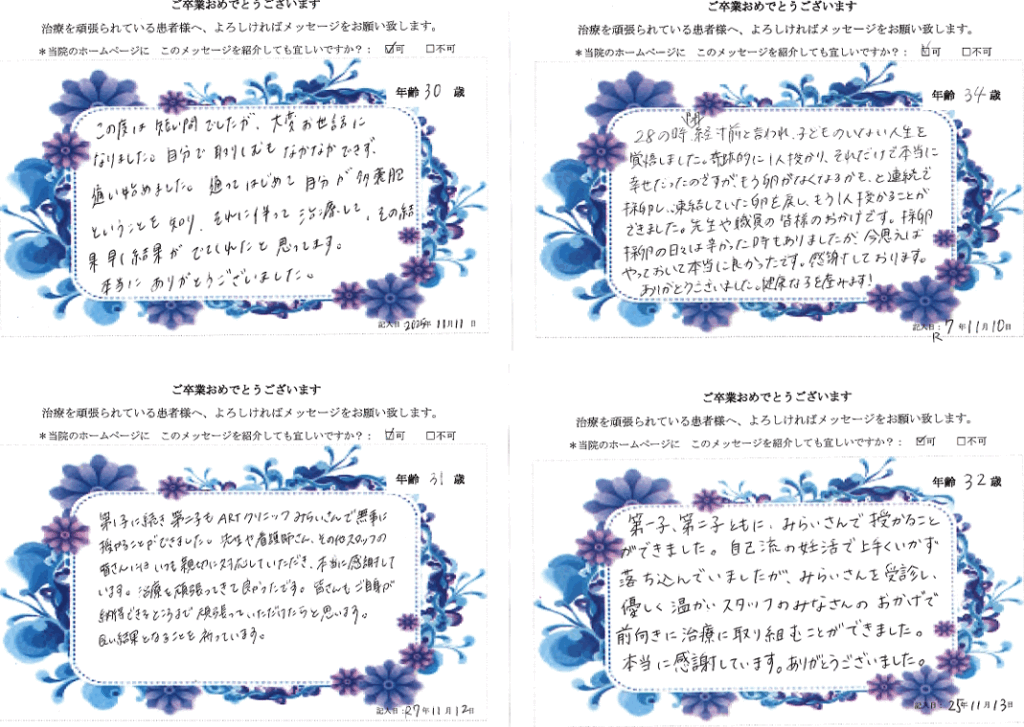 ご卒業おめでとうございます
治療を頑張られている患者様へ、よろしければメッセージをお願い致します。
＊当院のホームページに　このメッセージを紹介しても宜しいですか？： ☑可　☐不可
年齢 30 歳
この度は 短い間でしたが、大変お世話に
なりました。自分で取りくむもなかなかできず、
通い始めました。通ってはじめて自分が多嚢胞
ということを知り、それに伴って治療して、その結
果早く結果がでてくれたと思ってます。
本当に ありがとうございました。
記入日：2025年 11月 11日
ご卒業おめでとうございます
治療を頑張られている患者様へ、よろしければメッセージをお願い致します。
＊当院のホームページに　このメッセージを紹介しても宜しいですか？： ☑可　☐不可
年齢 34 歳
28の時、閉経寸前と言われ、子どものいない人生を
覚悟しました。奇跡的に1人授かり、それだけで本当に
幸せだったのですが、もう卵がなくなるかも、と連続で
採卵し、凍結していた卵を戻し、もう1人授かることが
できました。先生や職員の皆様のおかげです。採卵
採卵の日々は辛かった時もありましたが、今思えば
やっておいて本当に良かったです。感謝しております。
ありがとうございました。健康な子を産みます!
記入日：R7年11月10日
ご卒業おめでとうございます
治療を頑張られている患者様へ、よろしければメッセージをお願い致します。
＊当院のホームページに　このメッセージを紹介しても宜しいですか？： ☑可　☐不可
年齢 31 歳
第1子に続き第二子もARTクリニックみらいさんで無事に
授かることができました。先生や看護師さん、その他スタッフの
皆さんにはいつも親切に対応していただき、本当に感謝して
います。治療を頑張ってきて良かったです。皆さんもご自身が
納得できるところまで頑張っていただけたらと思います。
良い結果となることを祈っています。
記入日：R7年11月12日
ご卒業おめでとうございます
治療を頑張られている患者様へ、よろしければメッセージをお願い致します。
＊当院のホームページに　このメッセージを紹介しても宜しいですか？： ☑可　☐不可
年齢 32 歳
第一子、第二子ともに、みらいさんで授かること
ができました。自己流の妊活で上手くいかず
落ち込んでいましたが、みらいさんを受診し、
優しく温かいスタッフのみなさんのおかげで
前向きに治療に取り組むことができました。
本当に感謝しています。ありがとうございました。
記入日：25年11月13日